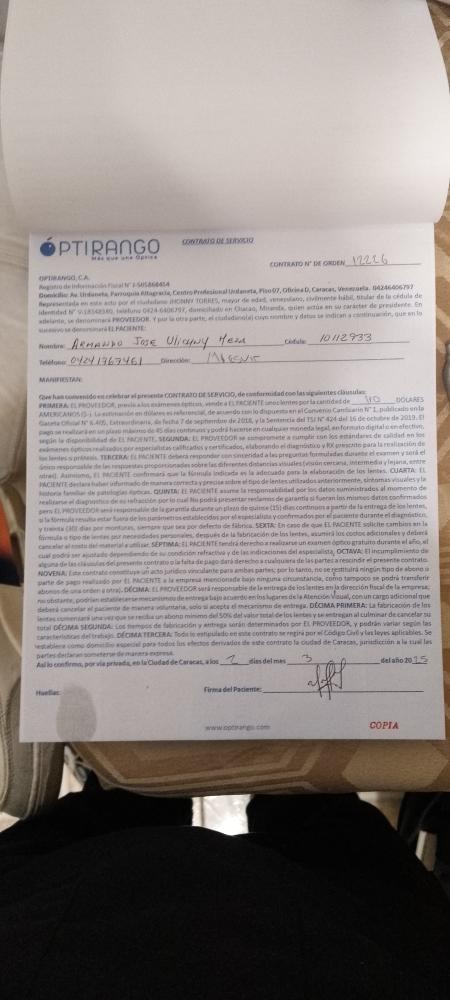 OPTIRANGO
Más que una Óptica
CONTRATO DE SERVICIO
CONTRATO N° DE ORDEN 12226
OPTIRANGO, C.A.
Registro de Información Fiscal N° J-505868454
Domicilio: Av. Urdaneta, Parroquia Altagracia, Centro Profesional Urdaneta, Piso 07, Oficina D, Caracas, Venezuela. 04246406797
Representada en este acto por el ciudadano JHONNY TORRES, mayor de edad, venezolano, civilmente hábil, titular de la cédula de
Identidad N° V-18348340, teléfono 0424-6406797, domiciliado en Chacao, Miranda, quien actúa en su carácter de presidente. En
adelante, se denominará PROVEEDOR. Y por la otra parte, el ciudadano(a) cuyo nombre y datos se indican a continuación, que en lo
sucesivo se denominará EL PACIENTE:
Nombre: ARMANDO JOSE Cédula: 10112933
Teléfono: 04241367461 Dirección:
MANIFIESTAN:
Que han convenido en celebrar el presente CONTRATO DE SERVICIO, de conformidad con las siguientes cláusulas:
PRIMERA: EL PROVEEDOR, previo a los exámenes ópticos, vende a EL PACIENTE unos lentes por la cantidad de 110 DOLARES
AMERICANOS ($-). La estimación en dólares es referencial, de acuerdo con lo dispuesto en el Convenio Cambiario N° 1, publicado en la
Gaceta Oficial N° 6.405, Extraordinaria, de fecha 7 de septiembre de 2018, y la Sentencia del TSJ N° 424 del 16 de octubre de 2019. El
pago se realizará en un plazo máximo de 45 días continuos y podrá hacerse en cualquier moneda legal, en formato digital o en efectivo,
según la disponibilidad de EL PACIENTE. SEGUNDA: EL PROVEEDOR se compromete a cumplir con los estándares de calidad en los
exámenes ópticos realizados por especialistas calificados y certificados, elaborando el diagnóstico y RX prescrito para la realización de
los lentes o prótesis. TERCERA: EL PACIENTE deberá responder con sinceridad a las preguntas formuladas durante el examen y será el
único responsable de las respuestas proporcionadas sobre las diferentes distancias visuales (visión cercana, intermedia y lejana, entre
otras). Asimismo, EL PACIENTE confirmará que la fórmula indicada es la adecuada para la elaboración de los lentes. CUARTA: EL
PACIENTE declara haber informado de manera correcta y precisa sobre el tipo de lentes utilizados anteriormente, síntomas visuales y la
historia familiar de patologías ópticas. QUINTA: EL PACIENTE asume la responsabilidad por los datos suministrados al momento de
realizarse el diagnóstico de su refracción por lo cual No podrá presentar reclamos de garantía si fueran los mismos datos confirmados
pero EL PROVEEDOR será responsable de la garantía durante un plazo de quince (15) días continuos a partir de la entrega de los lentes,
si la fórmula resulta estar fuera de los parámetros establecidos por el especialista y confirmados por el paciente durante el diagnóstico,
y treinta (30) días por monturas, siempre que sea por defecto de fábrica. SEXTA: En caso de que EL PACIENTE solicite cambios en la
fórmula o tipo de lentes por necesidades personales, después de la fabricación de los lentes, asumirá los costos adicionales y deberá
cancelar el costo del material a utilizar. SÉPTIMA: EL PACIENTE tendrá derecho a realizarse un examen óptico gratuito durante el año, el
cual podrá ser ajustado dependiendo de su condición refractiva y de las indicaciones del especialista, OCTAVA: El incumplimiento de
alguna de las cláusulas del presente contrato o la falta de pago dará derecho a cualquiera de las partes a rescindir el presente contrato.
NOVENA: Este contrato constituye un acto jurídico vinculante para ambas partes; por lo tanto, no se restituirá ningún tipo de abono o
parte de pago realizado por EL PACIENTE a la empresa mencionada bajo ninguna circunstancia, como tampoco se podrá transferir
abonos de una orden a otra). DÉCIMA: EL PROVEEDOR será responsable de la entrega de los lentes en la dirección fiscal de la empresa;
no obstante, podrían establecerse mecanismos de entrega bajo acuerdo en los lugares de la Atención Visual, con un cargo adicional que
deberá cancelar el paciente de manera voluntaria, solo si acepta el mecanismo de entrega. DÉCIMA PRIMERA: La fabricación de los
lentes comenzará una vez que se reciba un abono mínimo del 50% del valor total de los lentes y se entregan al culminar de cancelar su
total DÉCIMA SEGUNDA: Los tiempos de fabricación y entrega serán determinados por EL PROVEEDOR, y podrán variar según las
características del trabajo. DÉCIMA TERCERA: Todo lo estipulado en este contrato se regirá por el Código Civil y las leyes aplicables. Se
establece como domicilio especial para todos los efectos derivados de este contrato la ciudad de Caracas, jurisdicción a la cual las
partes declaran someterse de manera expresa.
Así lo confirmo, por vía privada, en la Ciudad de Caracas, a los 7 días del mes 3 del año 2025
Huellas: Firma del Paciente:
www.optirango.com
COPIA